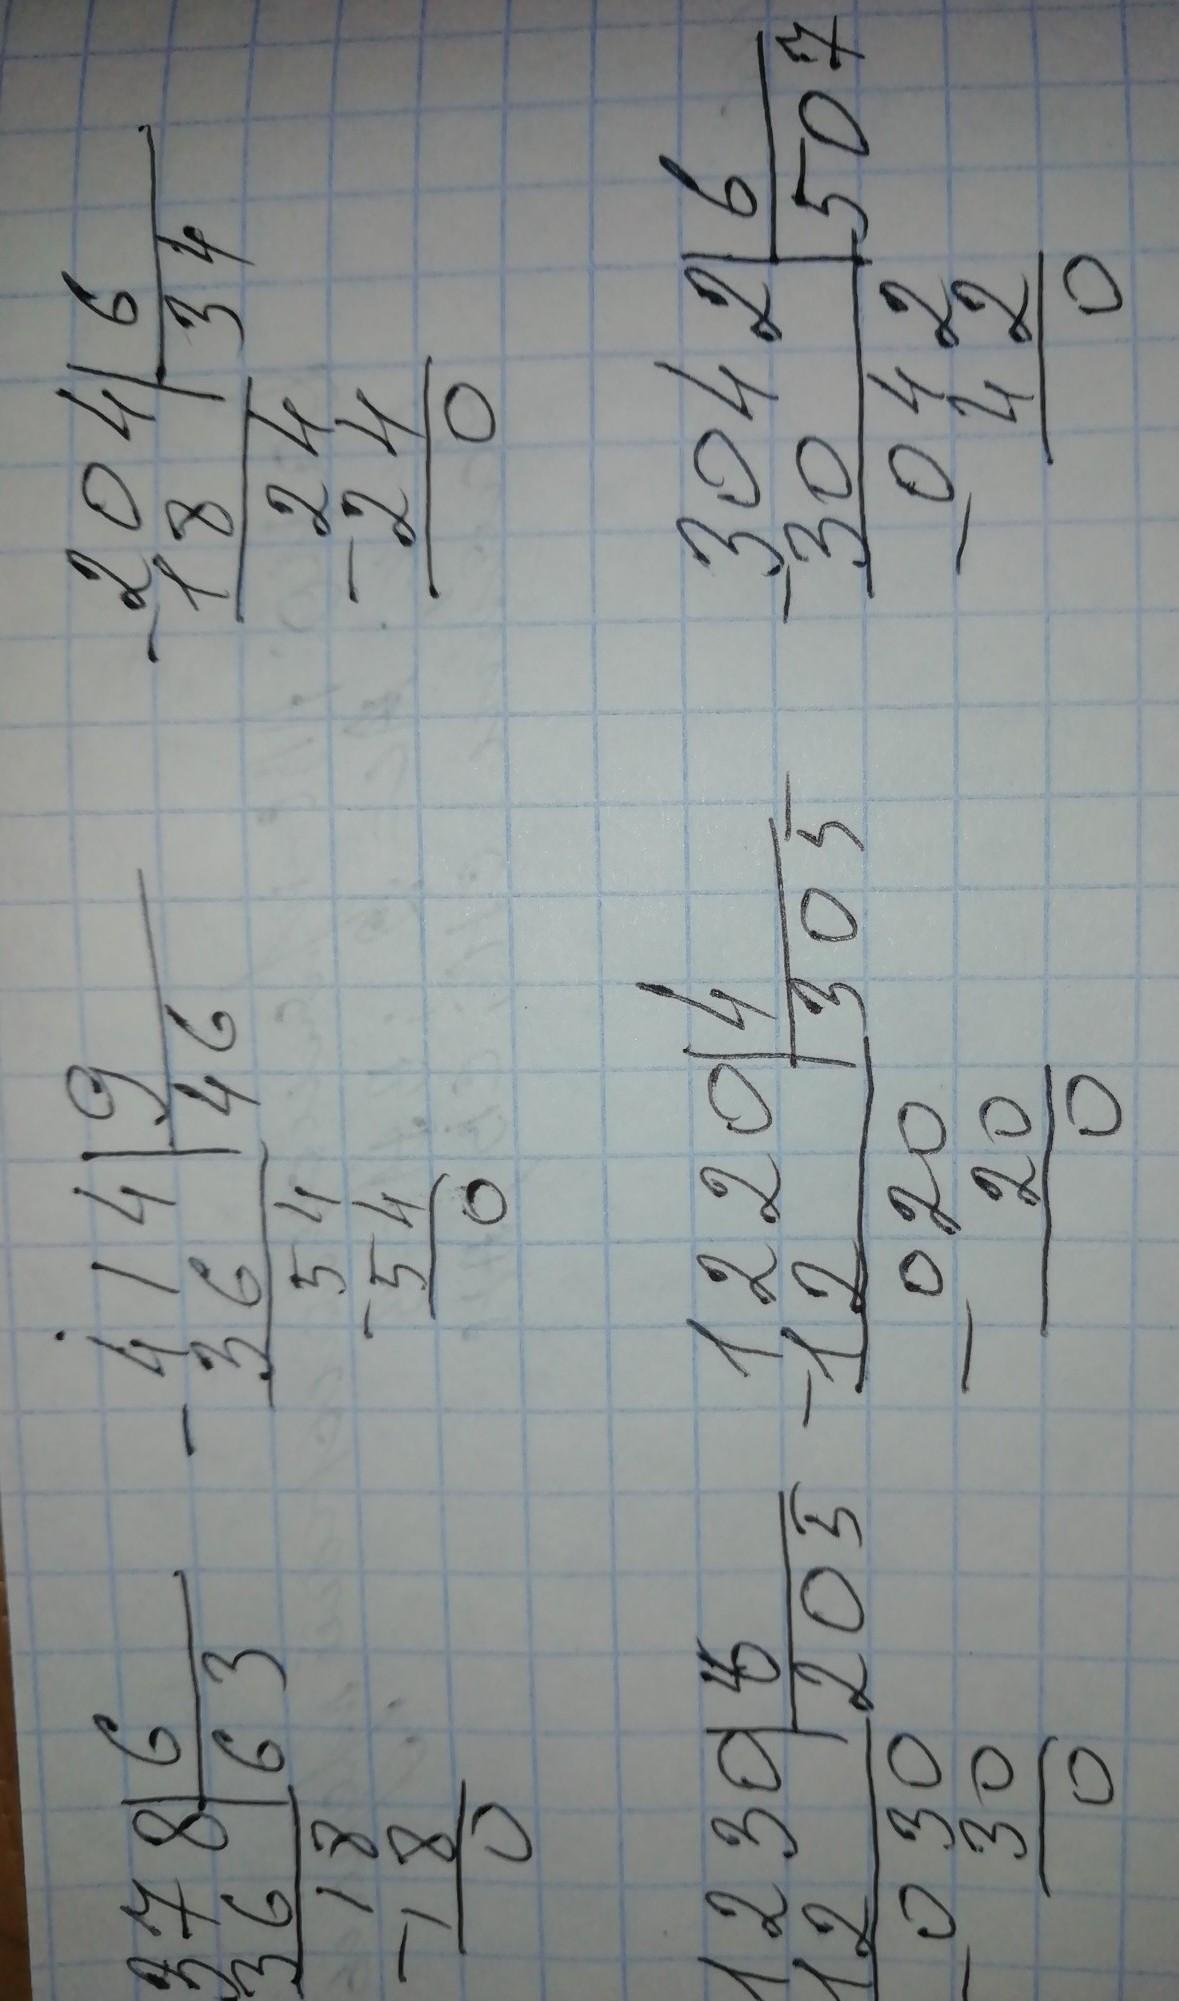 378|6
36|63
18
-18
0
-414|9
36|46
54
-54
0
-204|6
18|34
24
-24
0
1230|6
12|205
-030
30
0
-1220|4
12|305
-020
20
0
-3042|6
30|507
-042
42
0